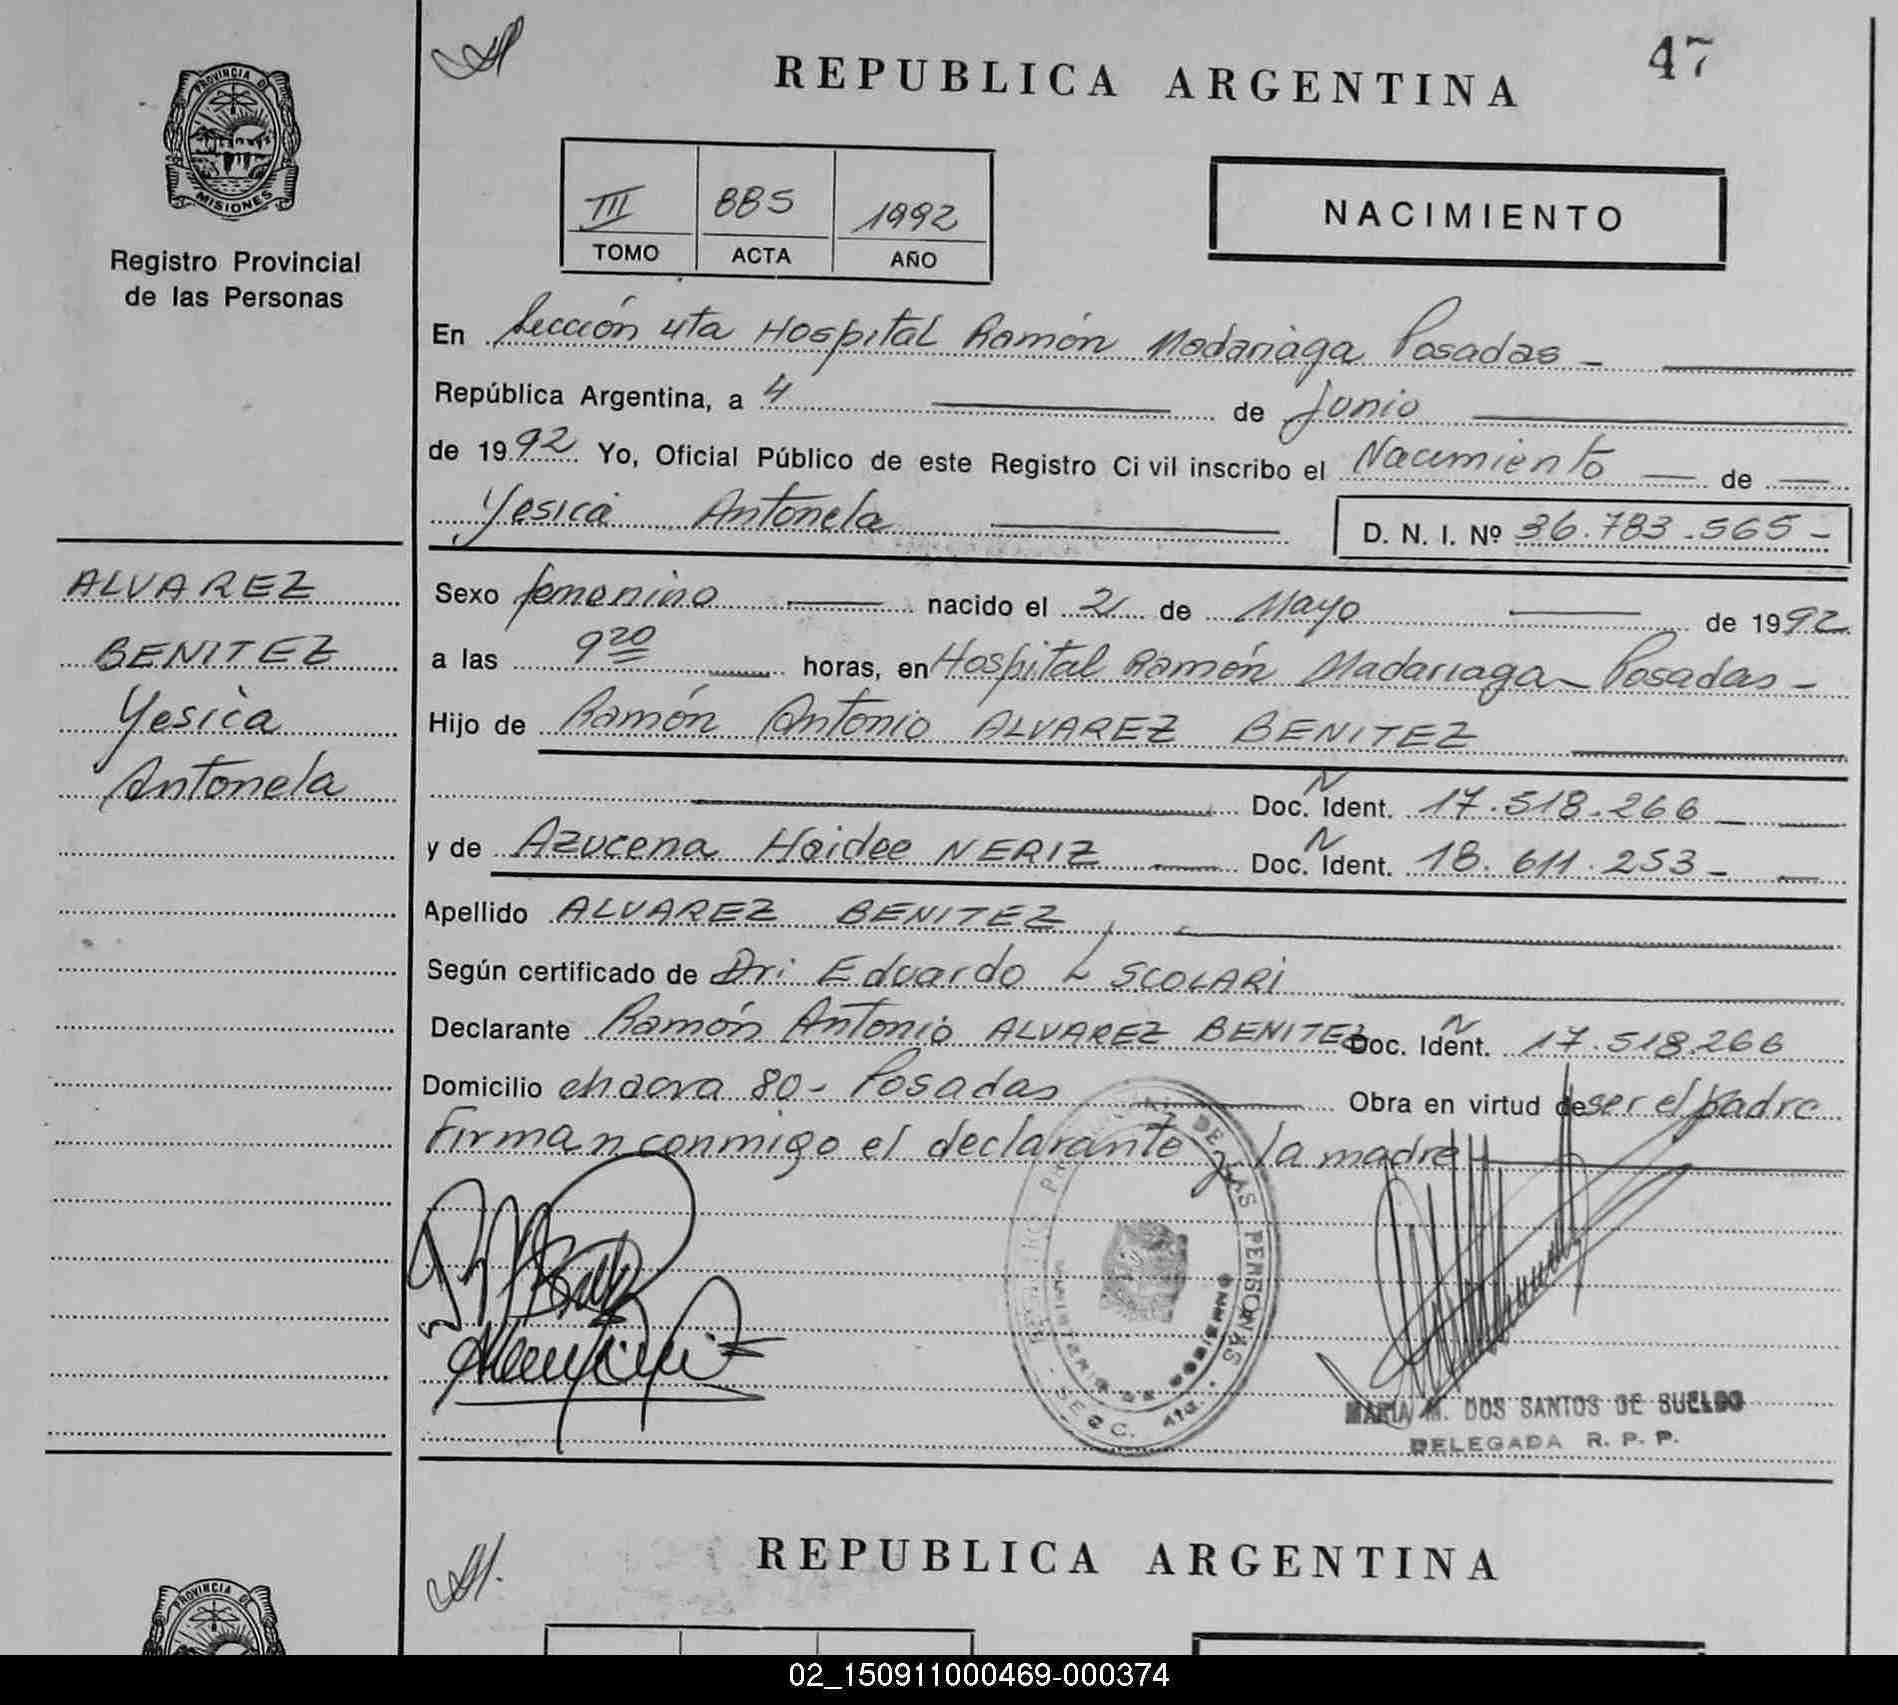 47
REPUBLICA ARGENTINA
PROVINCIA DE
MISIONES
Registro Provincial
de las Personas
III 885 1992
TOMO ACTA AÑO
NACIMIENTO
En Sección 4ta Hospital Ramón Madariaga Posadas -
República Argentina, a 4 de Junio
de 1992 Yo, Oficial Público de este Registro Civil inscribo el Nacimiento de
Yesica Antonela D. N. I. Nº 36.783.565-
ALVAREZ
BENITEZ
Yesica
Antonela
Sexo femenino nacido el 21 de Mayo de 1992
a las 9 20 horas, en Hospital Ramón Madariaga - Posadas -
Hijo de Ramón Antonio ALVAREZ BENITEZ
N
Doc. Ident. 17.518.266
y de Azucena Haidee NERIZ Doc. N Ident. 18.611.253-
Apellido ALVAREZ BENITEZ
Según certificado de Dr: Eduardo L SCOLARI
Declarante Ramón Antonio ALVAREZ BENITEZ Doc. Ident. N 17.518.266
Domicilio chacra 80- Posadas Obra en virtud de ser el padre
Firman conmigo el declarante y la madre
DE LAS PERSONAS
MINISTERIO DE GOBIERNO
SECC. 4ta.
MARIA M. DOS SANTOS DE SUELDO
DELEGADA R. P. P.
REPUBLICA ARGENTINA
PROVINCIA DE
02_150911000469-000374